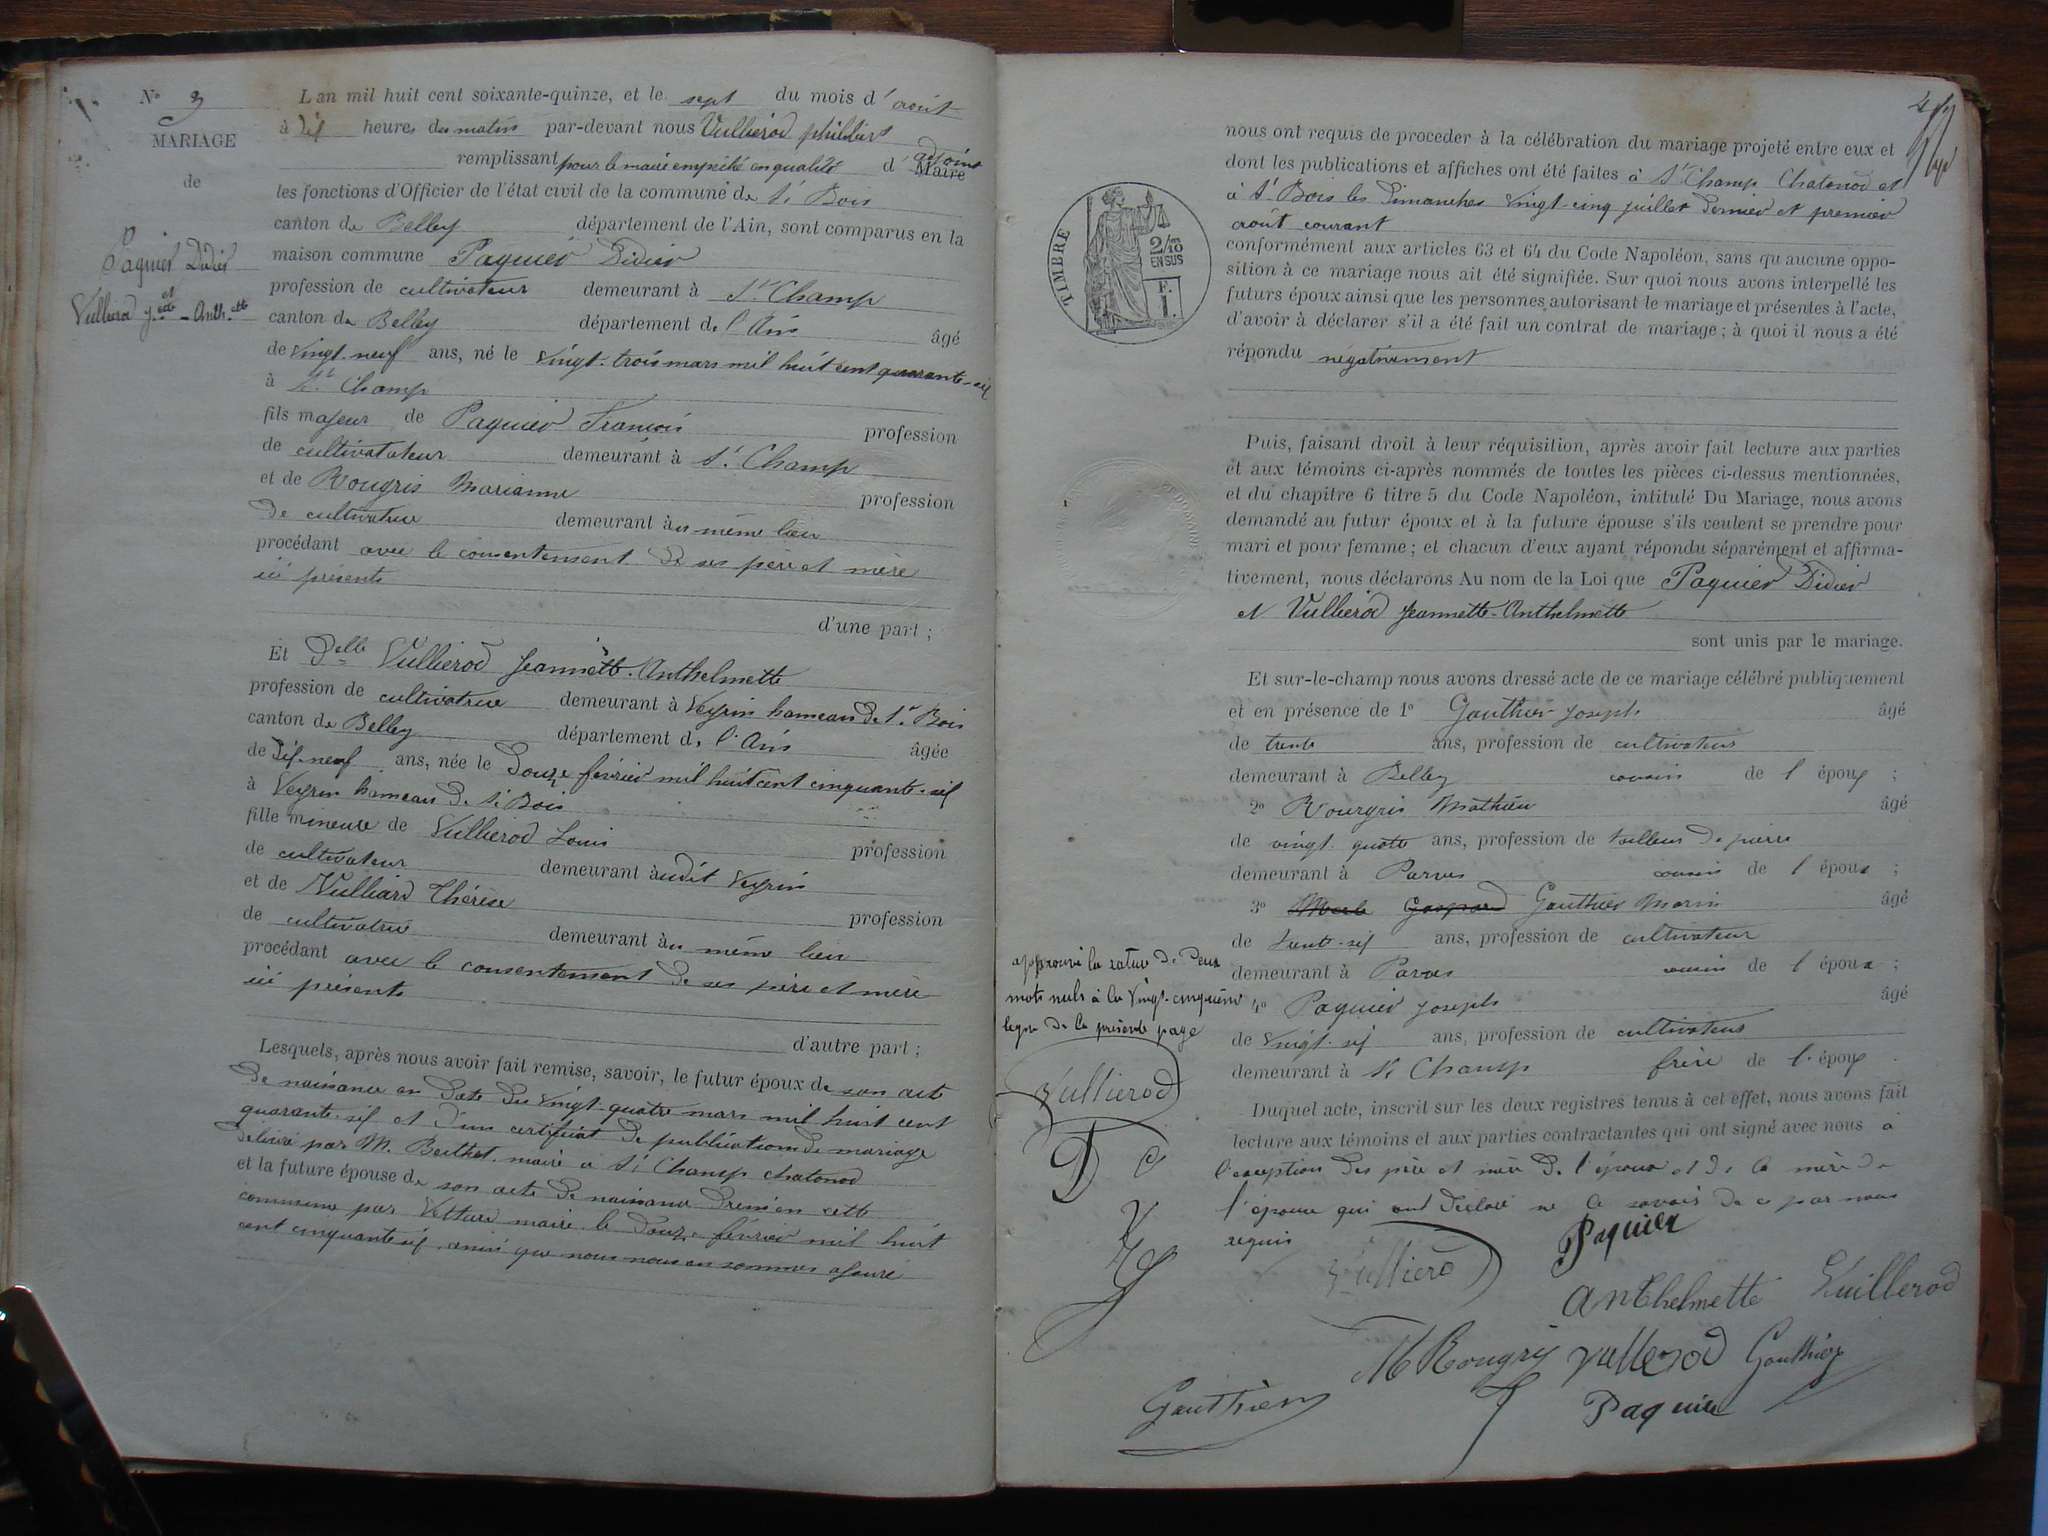 No 3
MARIAGE
de
Paquier Didier
et
Vullierod Jette-Anthette
L'an mil huit cent soixante-quinze, et le sept du mois d'août
à dix heures du matin par-devant nous Vullierod philibert
remplissant pour le maire empêché en qualité d'adjoint Maire
les fonctions d'Officier de l'état civil de la commune de St Bois
canton de Belley département de l'Ain, sont comparus en la
maison commune Paquier Didier
profession de cultivateur demeurant à St Champ
canton de Belley département de l'Ain âgé
de vingt-neuf ans, né le vingt-trois mars mil huit cent quarante-six
à St Champ
fils majeur de Paquier François profession
de cultivatateur demeurant à St Champ
et de Rougris Marianne profession
de cultivatrice demeurant au même lieu
procédant avec le consentement de ses père et mère
ici présents
d'une part ;
Et Delle Vullierod Jeannette-Anthelmette
profession de cultivatrice demeurant à Veyrin hameau de St Bois
canton de Belley département de l'Ain âgée
de dix-neuf ans, née le douze février mil huit cent cinquante-six
à Veyrin hameau de St Bois
fille mineure de Vullierod Louis profession
de cultivateur demeurant àudit Veyrin
et de Vulliard Thérèse profession
de cultivatrice demeurant au même lieu
procédant avec le consentement de ses père et mère
ici présents
d'autre part ;
Lesquels, après nous avoir fait remise, savoir, le futur époux de son acte
de naissance en date du vingt-quatre mars mil huit cent
quarante-six et d'un certificat de publications de mariage
délivré par M. Berthet maire à St Champ chatonod
et la future épouse de son acte de naissance dressé en cette
commune par maire le douze février mil huit
cent cinquante six, ainsi que nous nous en sommes assuré
nous ont requis de proceder à la célébration du mariage projeté entre eux et
dont les publications et affiches ont été faites à St Champ Chatonod et
à St Bois les Dimanches vingt-cinq juillet dernier et premier
août courant
TIMBRE
2/10 EN SUS
F. 1.
conformément aux articles 63 et 64 du Code Napoléon, sans qu'aucune oppo-
sition à ce mariage nous ait été signifiée. Sur quoi nous avons interpellé les
futurs époux ainsi que les personnes autorisant le mariage et présentes à l'acte,
d'avoir à déclarer s'il a été fait un contrat de mariage ; à quoi il nous a été
répondu négativement
Puis, faisant droit à leur réquisition, après avoir fait lecture aux parties
et aux témoins ci-après nommés de toutes les pièces ci-dessus mentionnées,
et du chapitre 6 titre 5 du Code Napoléon, intitulé Du Mariage, nous avons
demandé au futur époux et à la future épouse s'ils veulent se prendre pour
mari et pour femme ; et chacun d'eux ayant répondu séparément et affirma-
tivement, nous déclarons Au nom de la Loi que Paquier Didier
et Vullierod Jeannette-Anthelmette
sont unis par le mariage.
Et sur-le-champ nous avons dressé acte de ce mariage célébré publiquement
et en présence de 1o Gauthier Joseph âgé
de trente ans, profession de cultivateur
demeurant à Belley cousin de l'époux ;
2o Rourgris Mathieu âgé
de vingt-quatre ans, profession de tailleur de pierre
demeurant à Parves cousin de l'époux ;
3o Merle Gaspard Gauthier Marin âgé
de trente-six ans, profession de cultivateur
demeurant à Parves cousin de l'époux ;
4o Paquier Joseph âgé
de vingt-six ans, profession de cultivateur
demeurant à St Champ frère de l'époux.
approuvé la rature de deux
mots nuls à la vingt-cinquième
ligne de la présente page
Vullierod
Duquel acte, inscrit sur les deux registres tenus à cet effet, nous avons fait
lecture aux témoins et aux parties contractantes qui ont signé avec nous à
l'exception des père et mère de l'époux et de la mère de
l'épouse qui ont déclaré ne le savoir de ce par nous
requis
P G
V
G
Vullierod
Paquier
Anthelmette Vuillerod
M Rougris Vullerod Gauthier
Gauthier
Paquier